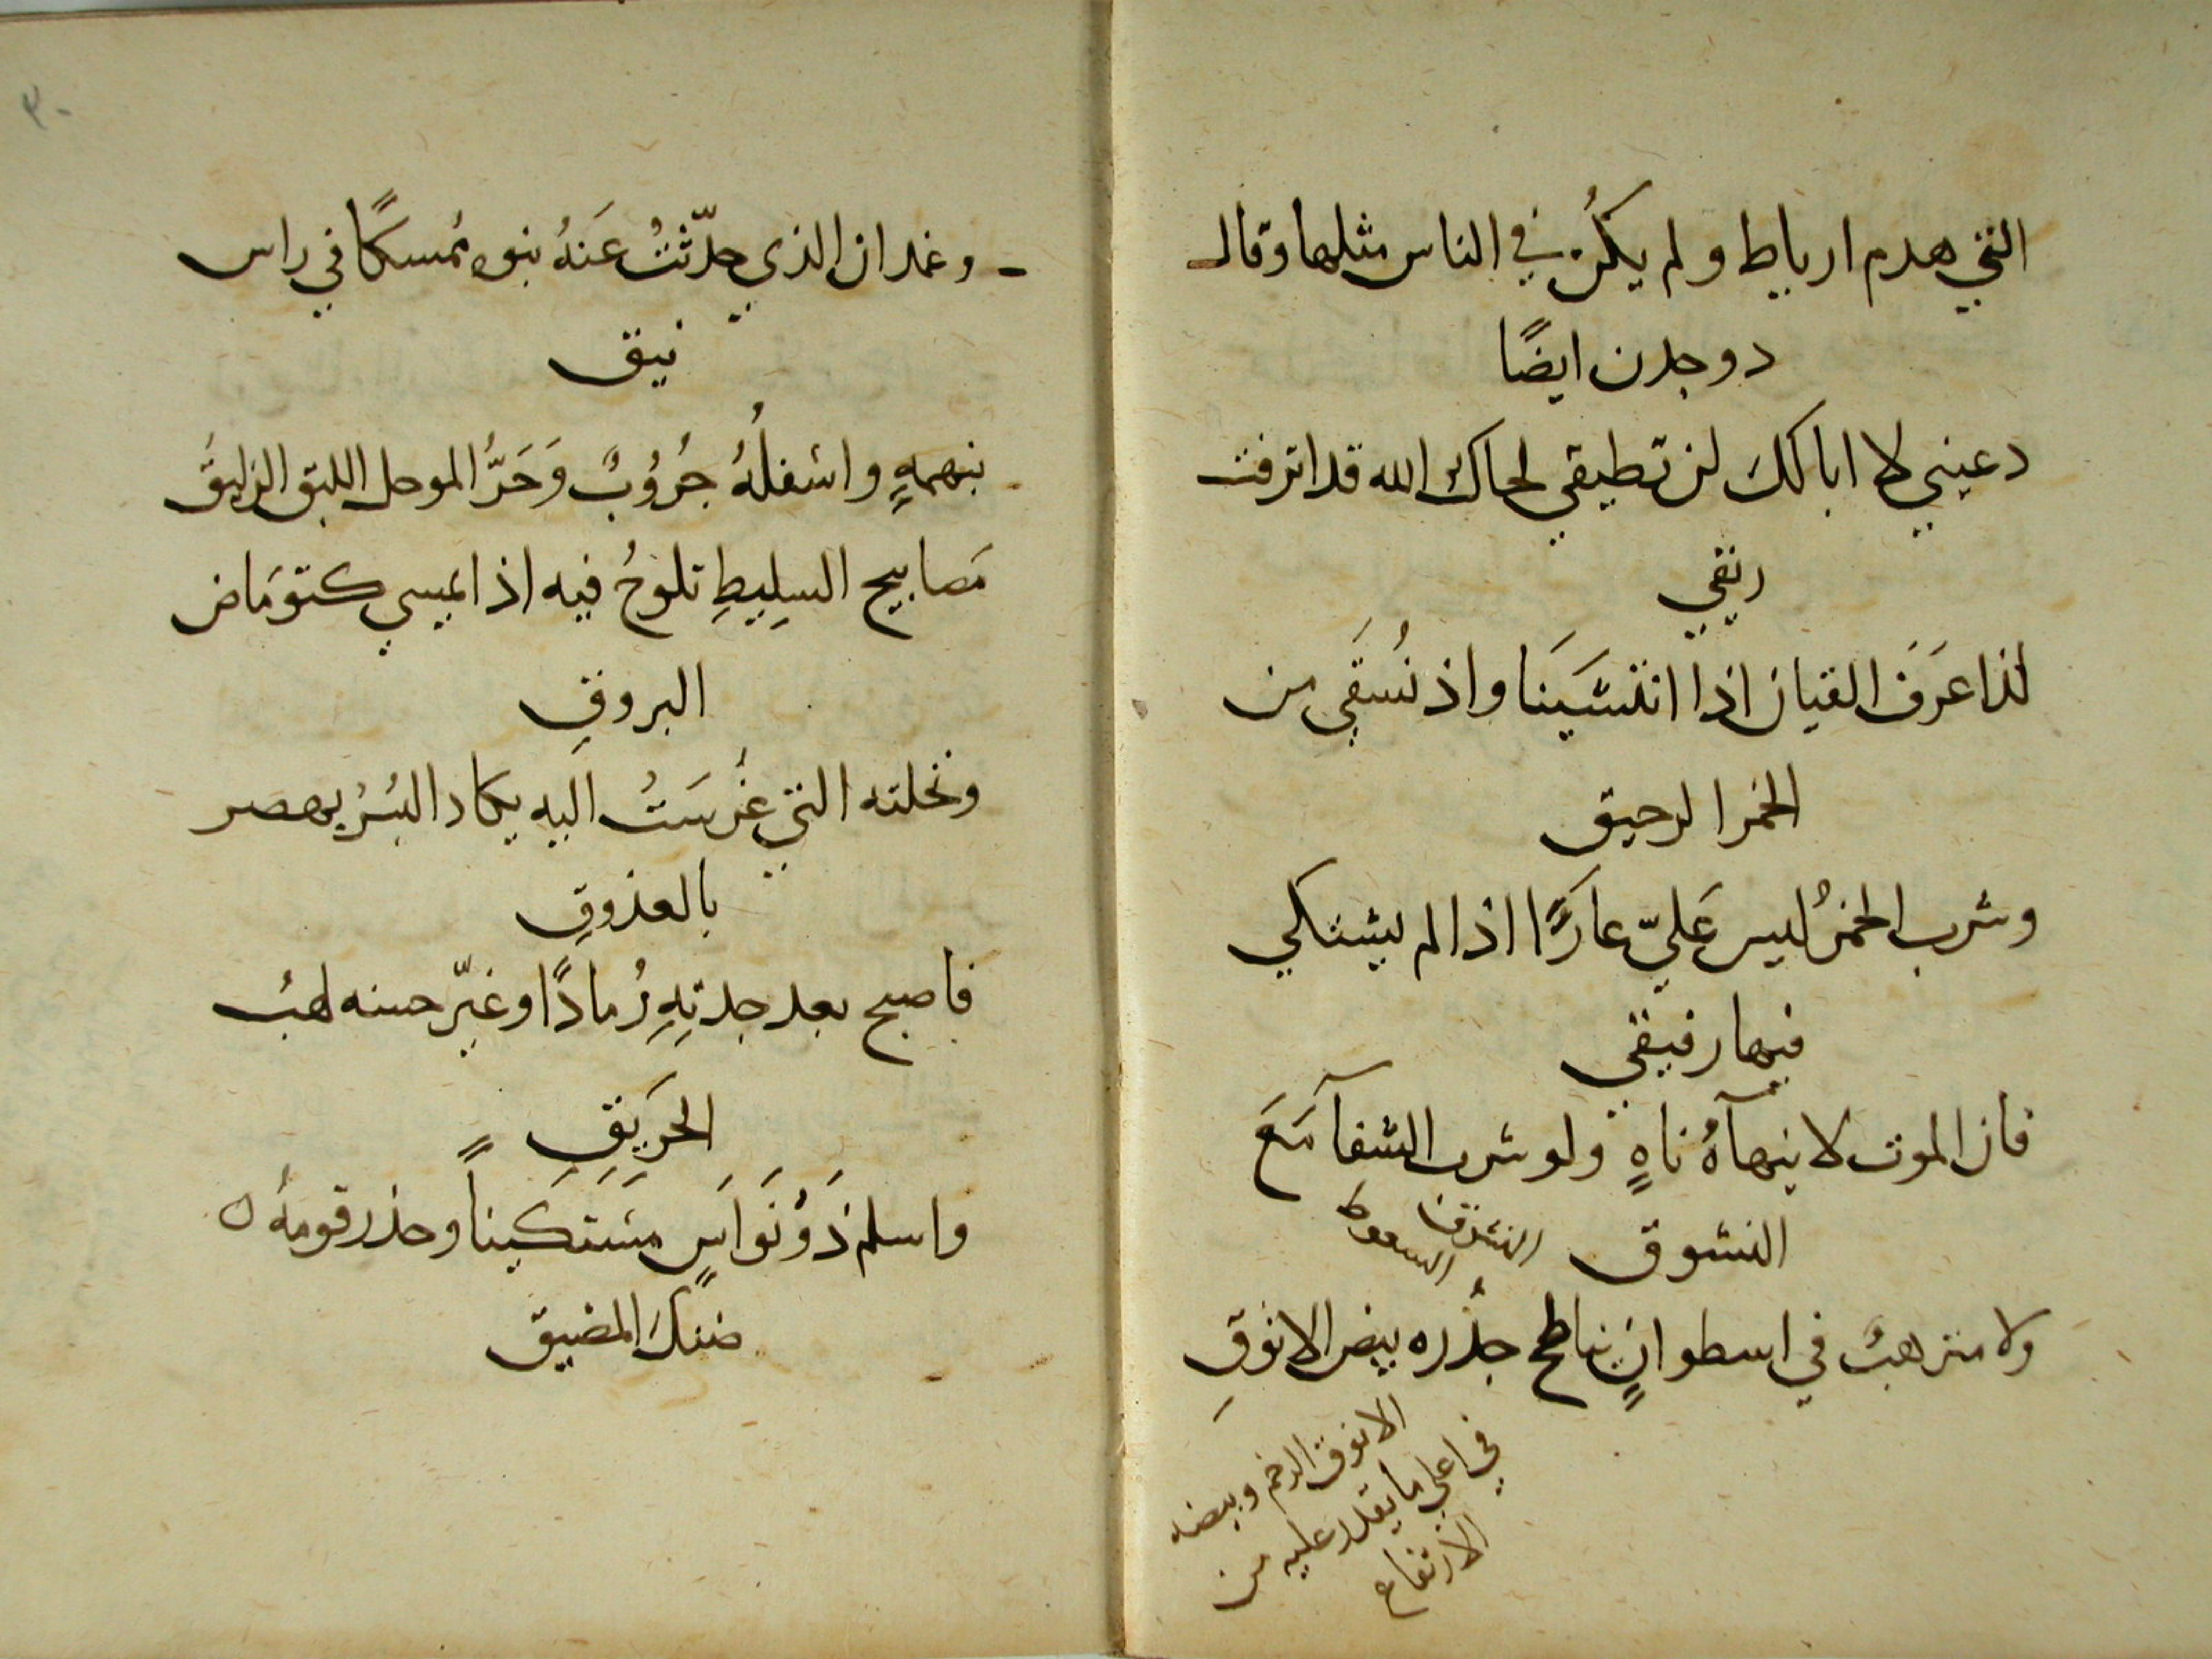 التي هدم ارياط ولم يكُن في الناس مثلها وقال
دوجدن ايضًا
دعيني لا ابا لكَ لن تطيقي لحاك الله قد انرفت
ريقي
لذا عَرَفَ القيان اذا انتشَيَنَا واذ نُسَقَي من
الخمر الرحيق
وشرب الخمرُ ليس عَليّ عارًا اذا لم يشتكي
فيها رفيقي
فان الموت لا ينهآهُ ناهٍ ولو شرب الشفآ مَعَ
النشوق
النشوق
السعوط
ولا مترهبُ في اسطوانٍ يناطح جُدُره بيض الانوقِ
الانوق الرخم وبيضه
في اعلي ما يقدر عليه من
الارتفاع
٣٠
وغمدان الذي حدّثتُ عَنهُ بنوه مُمسكًا في راس
نيق
بنهمهٍ واسفلُهُ جُرُوُبٌ وَحَرُّ الموحل اللبق الزليقَ
مَصابيح السِلِيطِ تلوحُ فيه اذا يمسي كتومَاض
البروقِ
ونخلته التي غُرسَتُ اليه يكاد البُسُرُ يهصر
بالعذوقِ
فاصبح بعد جدتِهِ رُمادًا وغيّر حسنه لهبُ
الحَرِيقِ
واسلم ذَوُ نَوَاَسٍ مسَتَكيناً وحذر قومهُ
ضنكَ المضيق